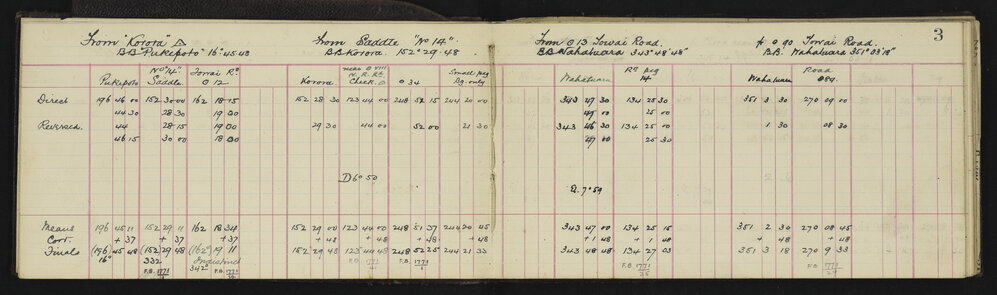 3
From "Korora" △ from Saddle "No 14". From O 13 Towai Road. f O 90 Towai Road.
BB "Pukepoto" 16° 45 48 BB Korora. 152° 29' 48. BB Wahatuara 343° 48' 48" BB. Wahatuara 351° 03' 18"
Pukepoto No "14" Saddle Towai Rd O 12 Korora Check. O O 34 Small peg Bg. only Wahatuara Rd peg Wahatuara Road
Direct 196 46 00 152 30 00 162 18 15 152 28 30 123 44 00 248 51 15 244 20 00 343 47 30 134 25 30 351 3 30 270 09 00
44 30 28 30 19 00 47 00 25 00
Reversed. 44 28 15 19 00 29 30 44 00 52 00 21 30 343 46 30 134 25 00 1 30 08 30
46 15 30 00 18 30 47 00 25 30
D 6° 50
E. 7° 59
Means 196 45 11 152 29 11 162 18 34 152 29 00 123 44 00 248 51 37 244 20 45 343 47 00 134 25 15 351 2 30 270 08 45
Corr. + 37 + 37 + 37 + 48 + 48 + 48 + 48 + 1 48 + 1 48 + 48 + 48
Finals (196 45 48 (152 29 48 (162° 19 11 152 29 48 123 44 48 248 52 25 244 21 33 343 48 48 134 27 03 351 3 18 270 9 33
16° 332 Indistinct
F.B. 1771 342° F.B. 1771 F.B. 1771 F.B. 1771 F.B. 1771 F.B. 1771